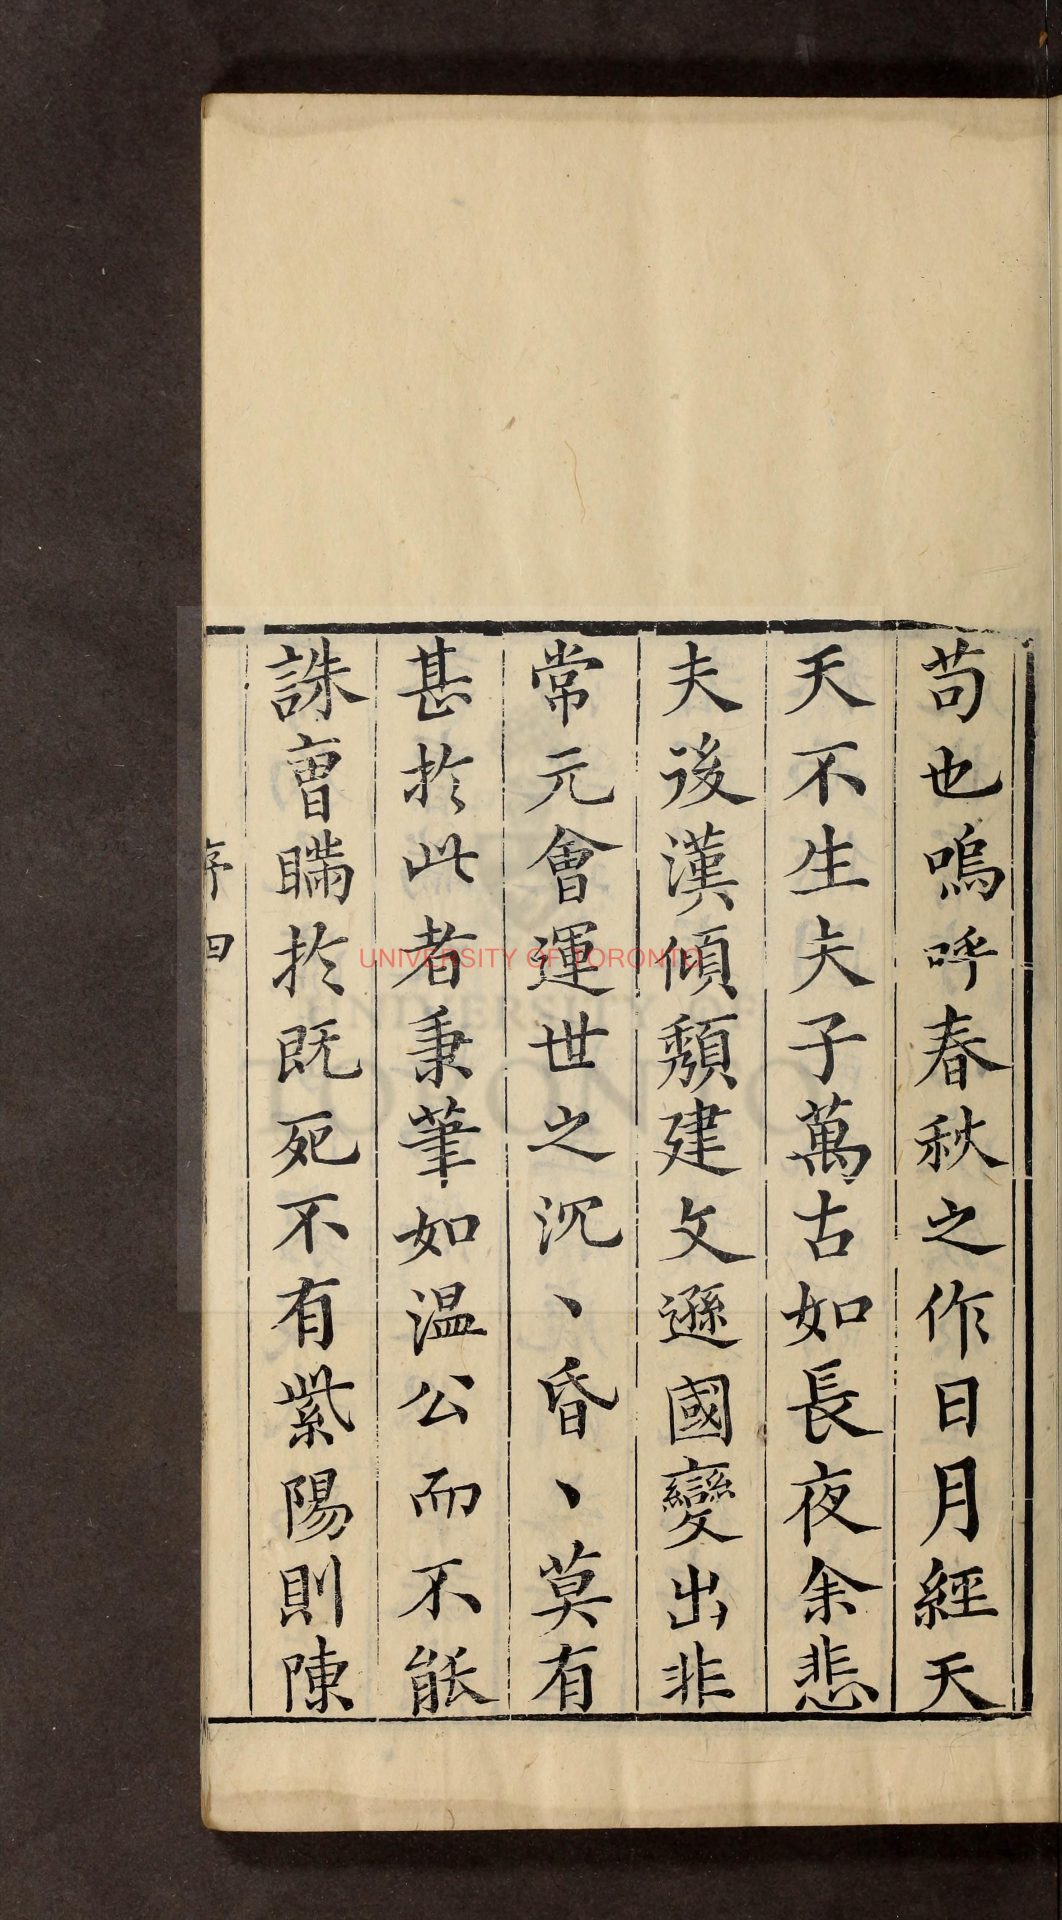 苟也嗚呼春秋之作日月經天
天不生夫子萬古如長夜余悲
夫後漢傾頹建文遜國變出非
常元會運世之沉、昏、莫有
甚於此者秉筆如温公而不能
誅曹瞞於既死不有紫陽則陳
序四
UNIVERSITY OF TORONTO